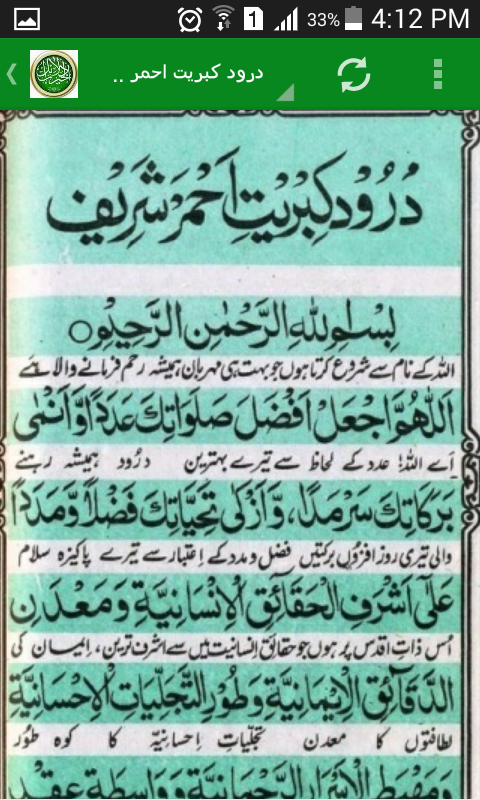 33% 4:12 PM
درود كبريت احمر ..
دُرُوْد كِبْرِيْتِ اَحْمَرْ شَرِيْف
بِسْمِ اللهِ الرَّحْمٰنِ الرَّحِيْمِ
اللہ کے نام سے شروع کرتا ہوں جو بہت ہی مہربان ہمیشہ رحم فرمانے والا ہے
اَللّٰهُمَّ اجْعَلْ اَفْضَلَ صَلَوَاتِكَ عَدَدًا وَّاَنْمٰى
اَے اللہ! عدد کے لحاظ سے تیرے بہترین درُود ہمیشہ رہنے
بَرَكَاتِكَ سَرْمَدًا، وَّاَزْكٰى تَحِيَّاتِكَ فَضْلًا وَّمَدَدًا
والی تیری روز افزوں برکتیں فضل و مدد کے اعتبار سے تیرے پاکیزہ سلام
عَلٰٓى اَشْرَفِ الْحَقَآئِقِ الْاِنْسَانِيَّةِ وَمَعْدَنِ
اُس ذاتِ اقدس پر ہوں جو حقائقِ انسانیت میں سے اشرف ترین، ایمان کی
الدَّقَآئِقِ الْاِيْمَانِيَّةِ وَطُوْرِ التَّجَلِّيَاتِ الْاِحْسَانِيَّةِ
لطافتوں کا معدن تجلیّاتِ اِحسانیّہ کا کوہ طُور
وَمَهْبَطِ الْاَسْرَارِ الرَّحْمَانِيَّةِ وَوَاسِطَةِ عِقْدِ